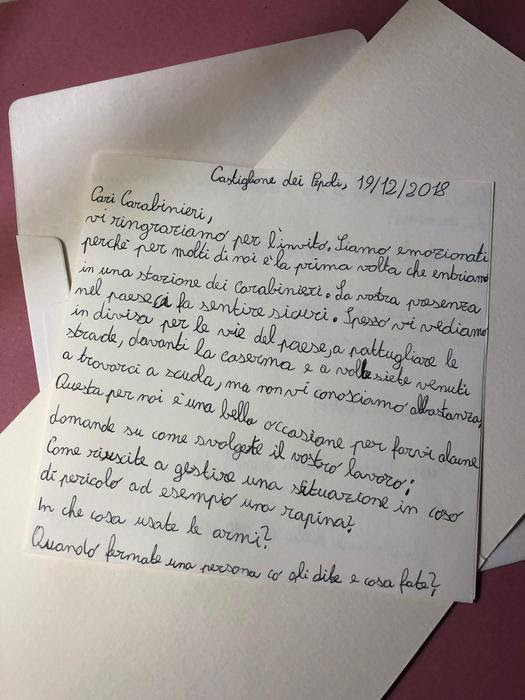 Castiglione dei Pepoli, 19/12/2018
Cari Carabinieri,
vi ringraziamo per l'invito. Siamo emozionati
perché per molti di noi è la prima volta che entriamo
in una stazione dei Carabinieri. La vostra presenza
nel paese ci fa sentire sicuri. Spesso vi vediamo
in divisa per le vie del paese, a pattugliare le
strade, davanti la caserma e a volte siete venuti
a trovarci a scuola, ma non vi conosciamo abbastanza.
Questa per noi è una bella occasione per farvi alcune
domande su come svolgete il vostro lavoro:
Come riuscite a gestire una situazione in caso
di pericolo ad esempio una rapina?
In che cosa usate le armi?
Quando fermate una persona co gli dite e cosa fate?